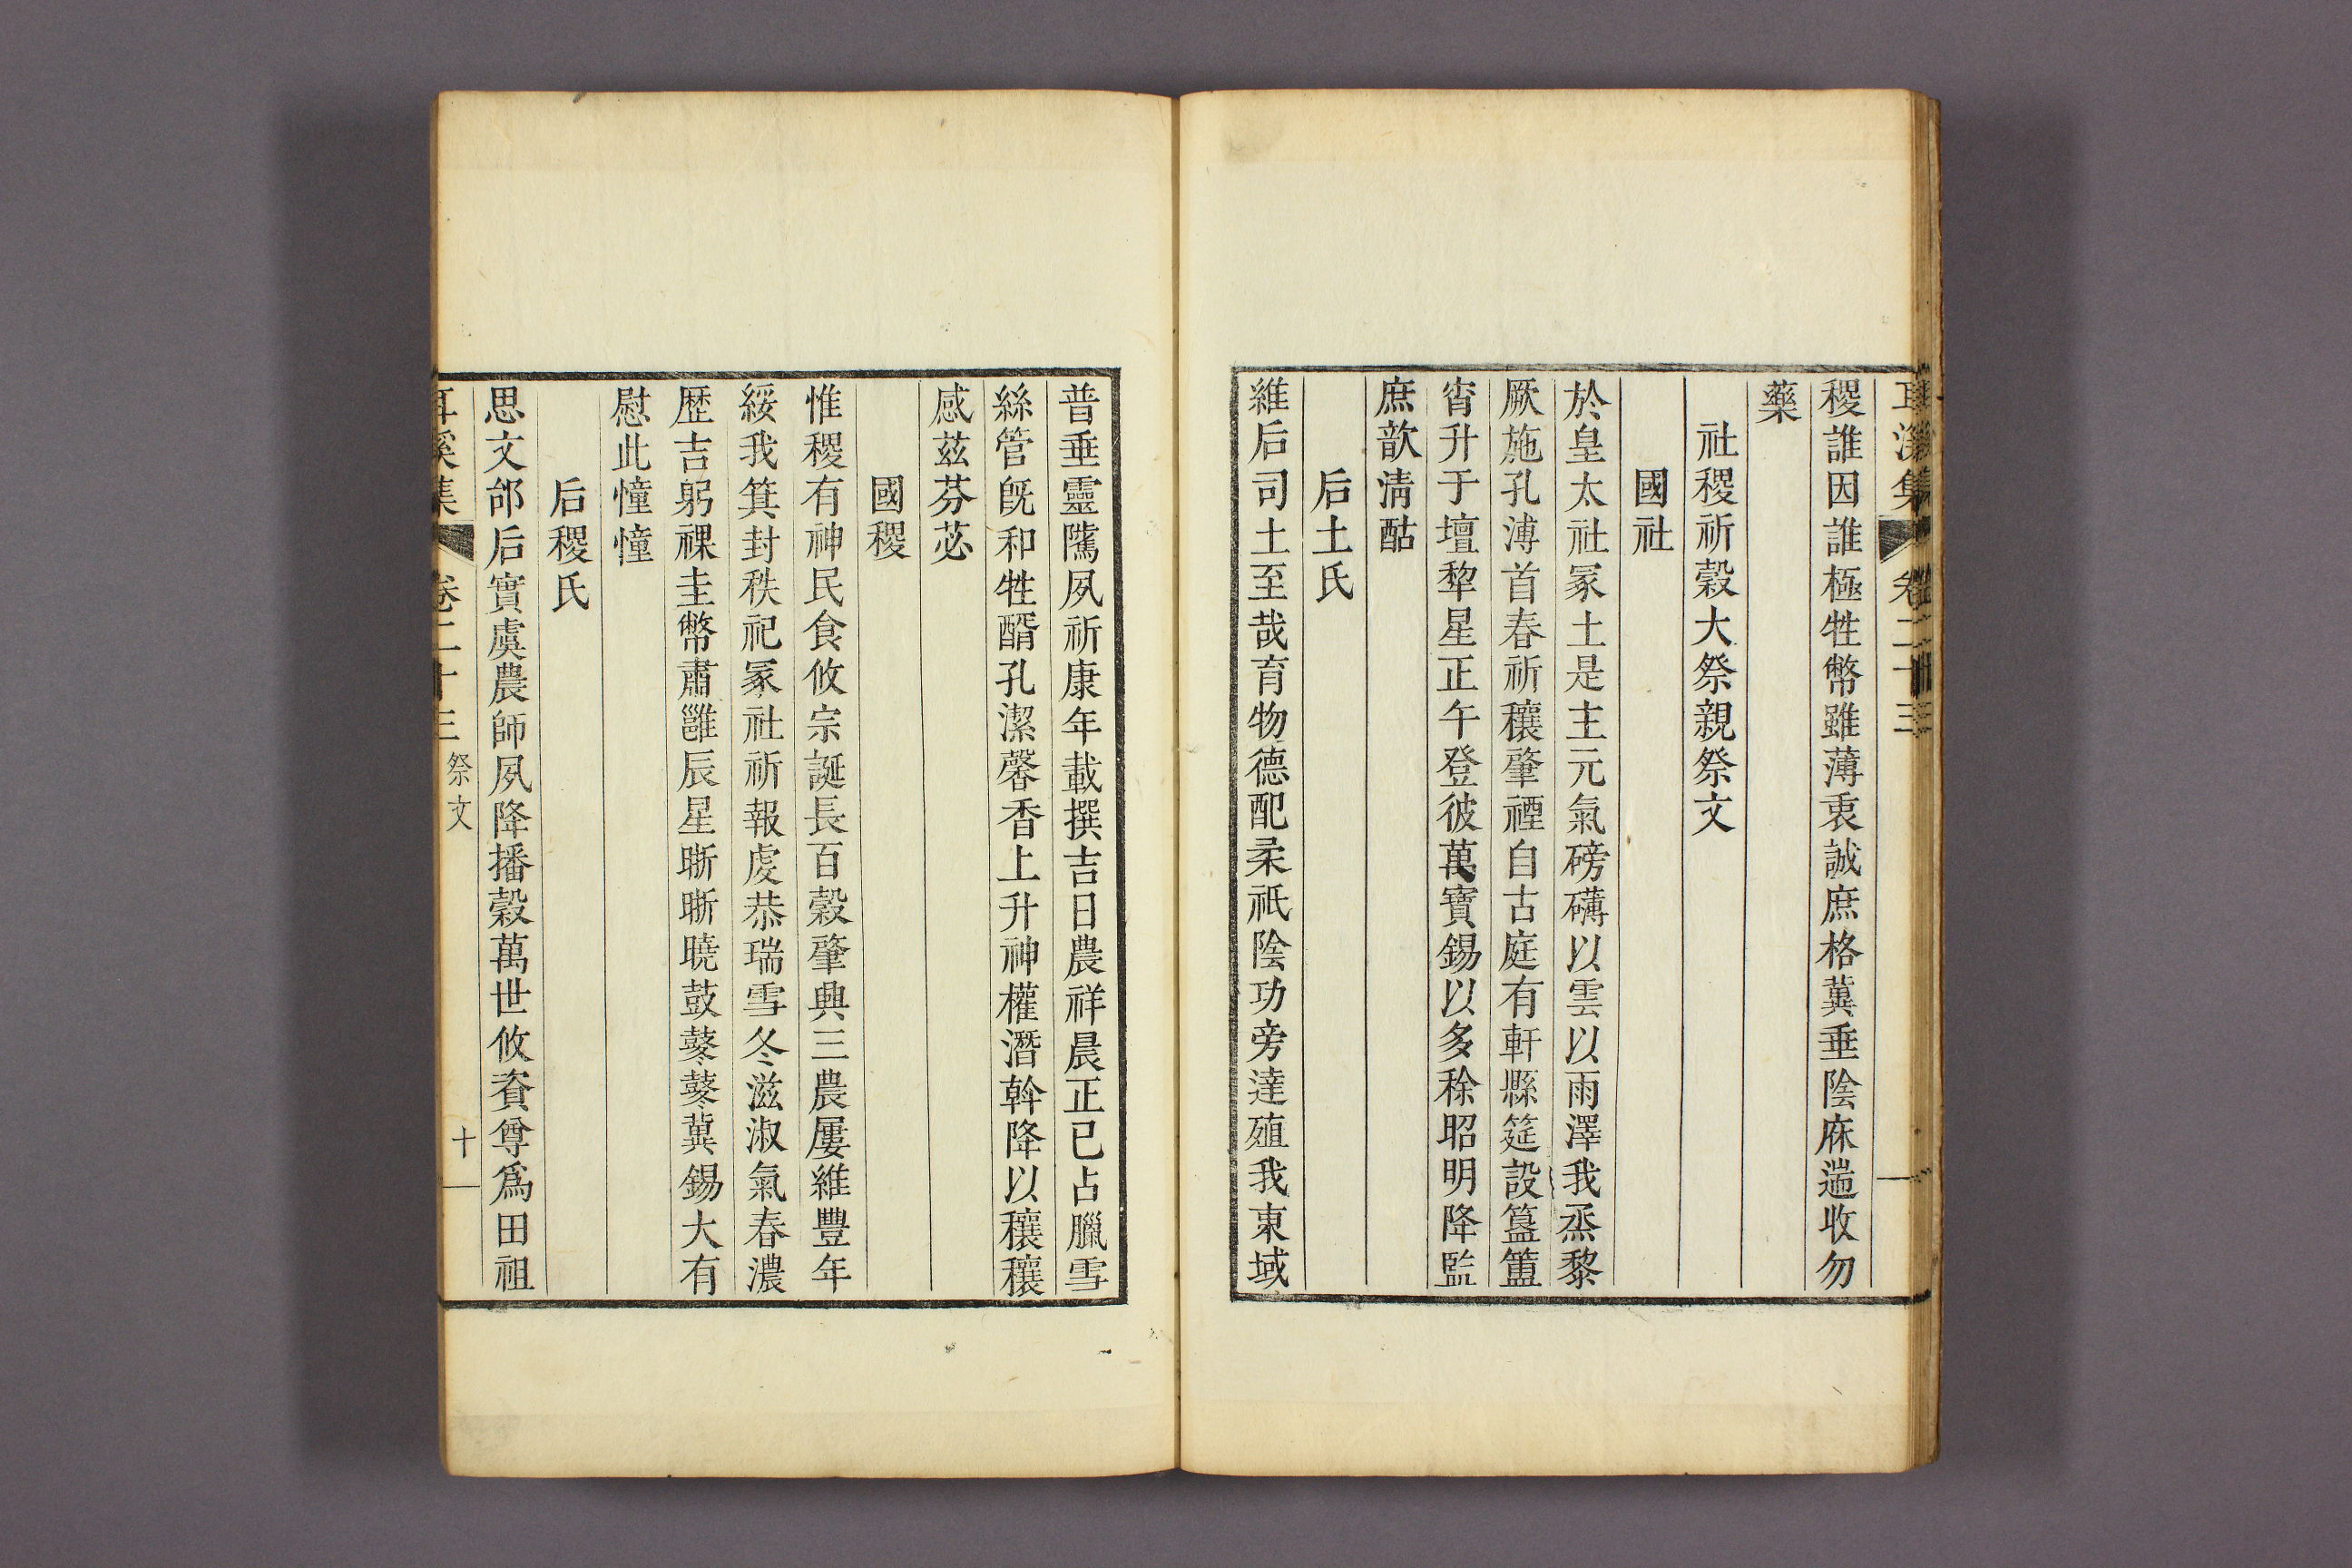 耳溪集 卷二十三
稷誰因誰極牲幣雖薄衷誠庶格冀垂陰庥遄收勿
藥
社稷祈穀大祭親祭文
國社
於皇太社冢土是主元氣磅礴以雲以雨澤我烝黎
厥施孔溥首春祈穰肇禋自古庭有軒縣筵設簋簠
宵升于壇犂星正午登彼萬寶錫以多稌昭明降監
庶歆淸酤
后土氏
維后司土至哉育物德配柔祇陰功旁達殖我東域
普垂靈隲夙祈康年載撰吉日農祥晨正已占臘雪
絲管旣和牲醑孔潔馨香上升神權潛斡降以穰穰
感玆芬苾
國稷
惟稷有神民食攸宗誕長百穀肇典三農屢維豐年
綏我箕封秩祀冢社祈報虔恭瑞雪冬滋淑氣春濃
歷吉躬祼圭幣肅雝辰星晣晣曉鼓鼕鼕冀錫大有
慰此憧憧
后稷氏
思文邰后實虞農師夙降播穀萬世攸資尊爲田祖
耳溪集 卷二十三 祭文 十